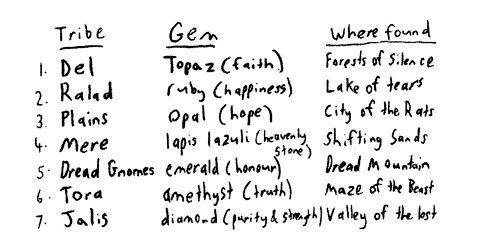 Tribe Gem Where found
1. Del Topaz (faith) Forests of Silence
2. Ralad ruby (happiness) Lake of tears
3. Plains opal (hope) City of the Rats
4. Mere lapis lazuli (heavenly stone) Shifting Sands
5. Dread Gnomes emerald (honour) Dread Mountain
6. Tora amethyst (truth) Maze of the Beast
7. Jalis diamond (purity & strength) Valley of the lost